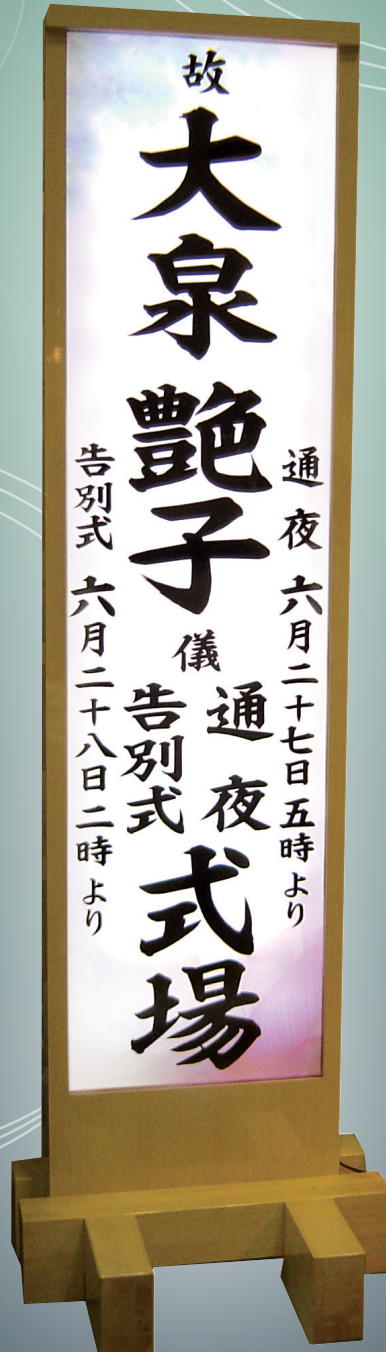 通夜 六月二十七日五時より
故 大泉 艶子 儀 通夜 告別式 式場
告別式 六月二十八日二時より